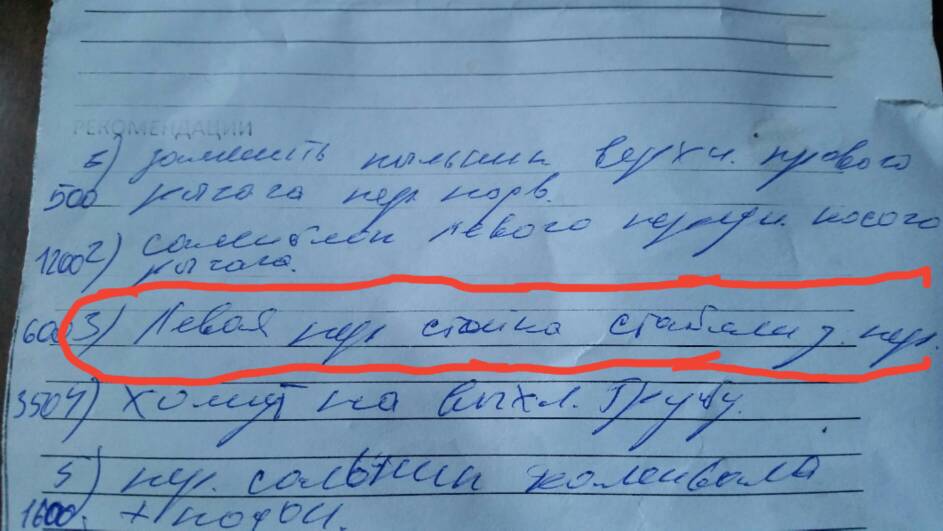 РЕКОМЕНДАЦИИ
1) заменить пыльник верхн. правого
500 рычага пер. порв.
1200 2) сайлентблок левого передн. косого
рычага.
600 3) Левая пер. стойка стабилиз. пер.
350 4) хомут на выхл. трубу.
5) пер. сальник коленвала
1600.